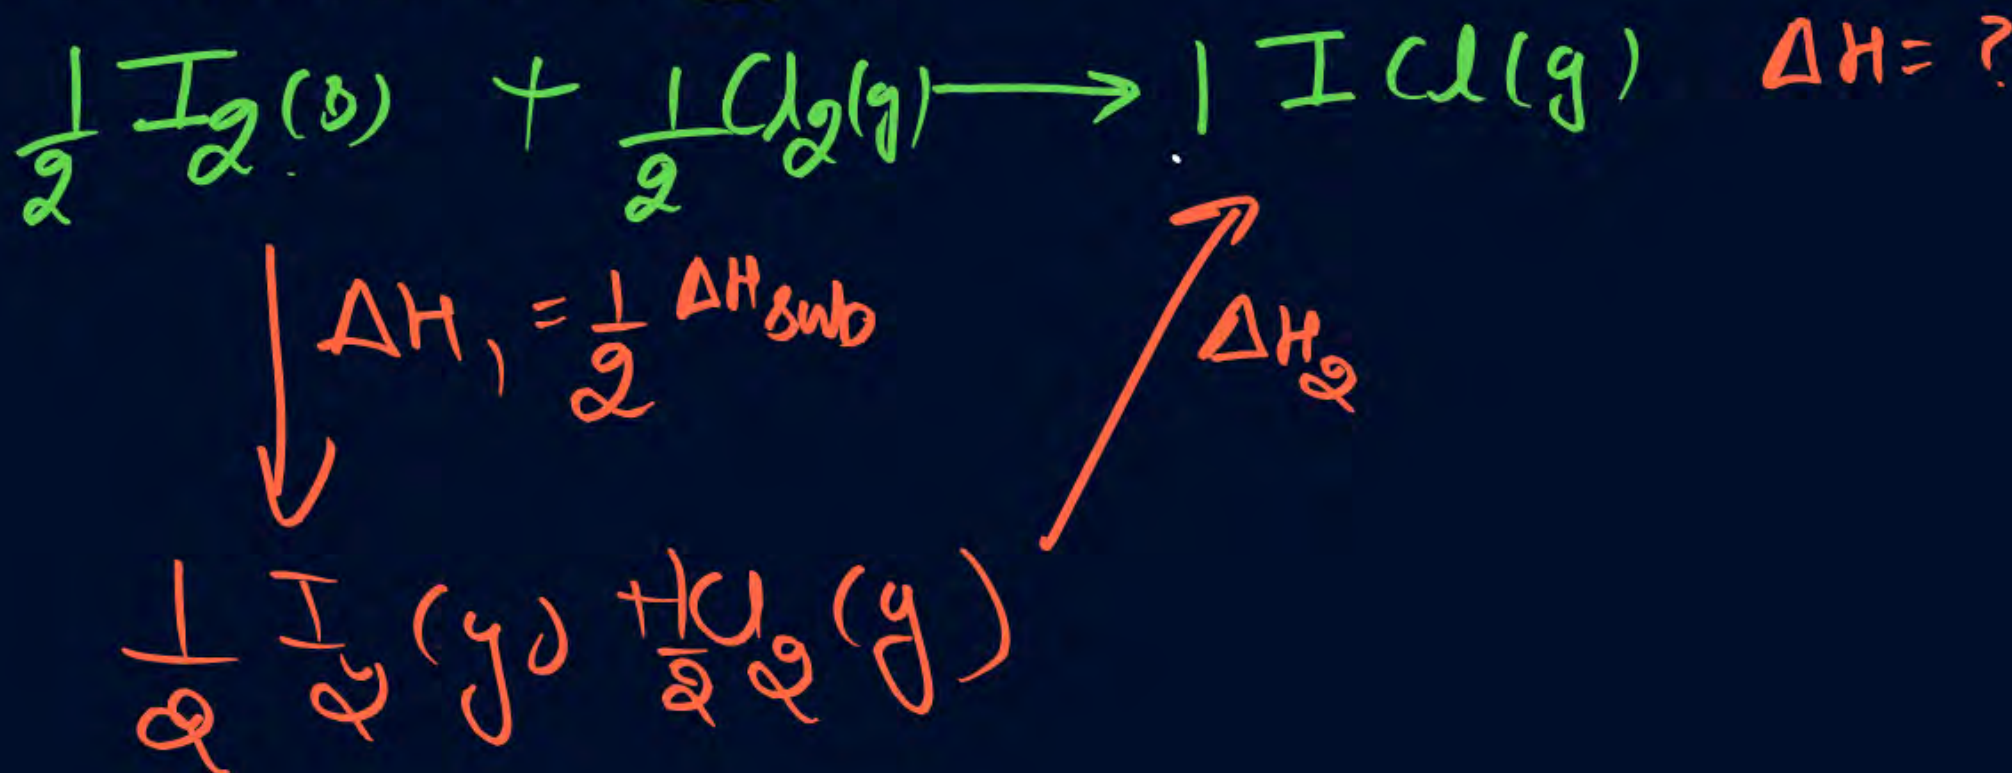 1/2 I₂(s) + 1/2 Cl₂(g) → 1 ICl(g) ΔH = ?
ΔH₁ = 1/2 ΔHsub
ΔH₂
1/2 I₂(g) + 1/2 Cl₂(g)